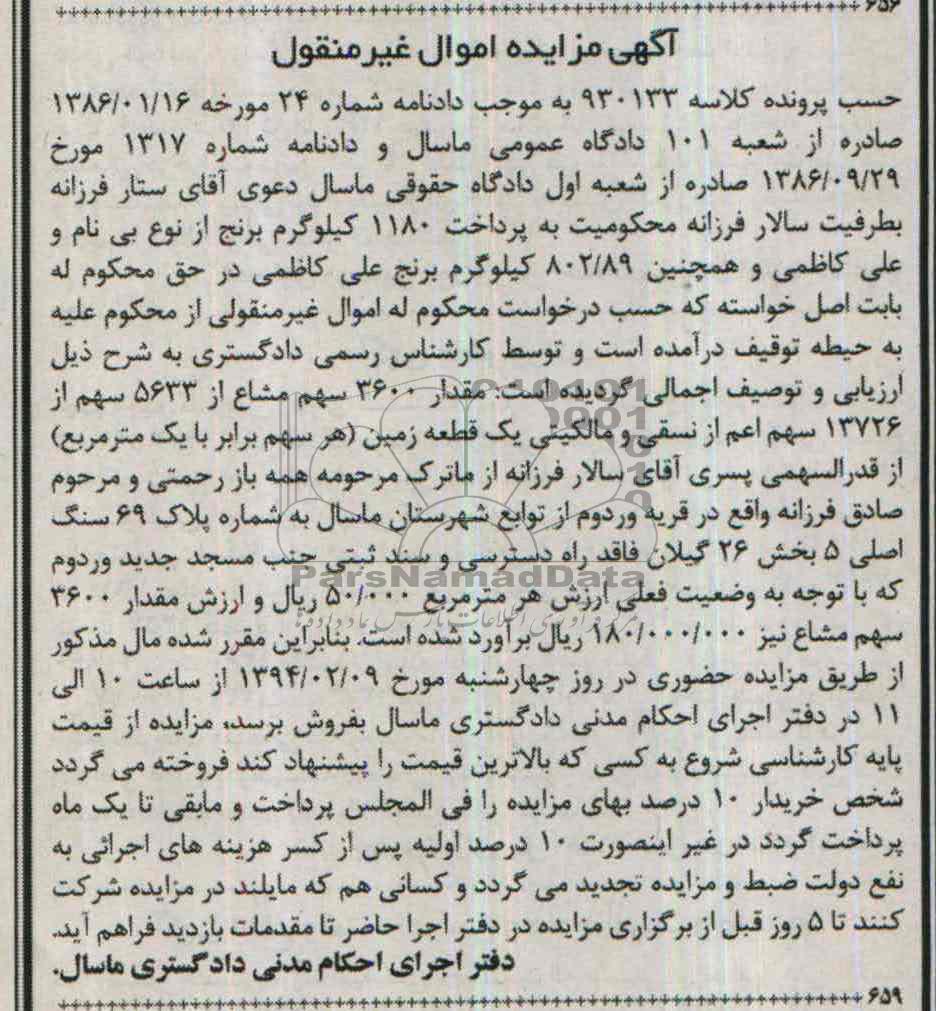 ۶۵۶
آگهی مزایده اموال غیرمنقول
حسب پرونده کلاسه ۹۳۰۱۳۳ به موجب دادنامه شماره ۲۴ مورخه ۱۳۸۶/۰۱/۱۶
صادره از شعبه ۱۰۱ دادگاه عمومی ماسال و دادنامه شماره ۱۳۱۷ مورخ
۱۳۸۶/۰۹/۲۹ صادره از شعبه اول دادگاه حقوقی ماسال دعوی آقای ستار فرزانه
بطرفیت سالار فرزانه محکومیت به پرداخت ۱۱۸۰ کیلوگرم برنج از نوع بی نام و
علی کاظمی و همچنین ۸۰۲/۸۹ کیلوگرم برنج علی کاظمی در حق محکوم له
بابت اصل خواسته که حسب درخواست محکوم له اموال غیرمنقولی از محکوم علیه
به حیطه توقیف درآمده است و توسط کارشناس رسمی دادگستری به شرح ذیل
ارزیابی و توصیف اجمالی گردیده است: مقدار ۳۶۰۰ سهم مشاع از ۵۶۳۳ سهم از
۱۳۷۲۶ سهم اعم از نسقی و مالکیتی یک قطعه زمین (هر سهم برابر با یک مترمربع)
از قدرالسهمی پسری آقای سالار فرزانه از ماترک مرحومه همه باز رحمتی و مرحوم
صادق فرزانه واقع در قریه وردوم از توابع شهرستان ماسال به شماره پلاک ۶۹ سنگ
اصلی ۵ بخش ۲۶ گیلان فاقد راه دسترسی و سند ثبتی جنب مسجد جدید وردوم
که با توجه به وضعیت فعلی ارزش هر مترمربع ۵۰/۰۰۰ ریال و ارزش مقدار ۳۶۰۰
سهم مشاع نیز ۱۸۰/۰۰۰/۰۰۰ ریال برآورد شده است. بنابراین مقرر شده مال مذکور
از طریق مزایده حضوری در روز چهارشنبه مورخ ۱۳۹۴/۰۲/۰۹ از ساعت ۱۰ الی
۱۱ در دفتر اجرای احکام مدنی دادگستری ماسال بفروش برسد، مزایده از قیمت
پایه کارشناسی شروع به کسی که بالاترین قیمت را پیشنهاد کند فروخته می گردد
شخص خریدار ۱۰ درصد بهای مزایده را فی المجلس پرداخت و مابقی تا یک ماه
پرداخت گردد در غیر اینصورت ۱۰ درصد اولیه پس از کسر هزینه های اجرائی به
نفع دولت ضبط و مزایده تجدید می گردد و کسانی هم که مایلند در مزایده شرکت
کنند تا ۵ روز قبل از برگزاری مزایده در دفتر اجرا حاضر تا مقدمات بازدید فراهم آید.
دفتر اجرای احکام مدنی دادگستری ماسال.
۶۵۹
ParsNamadData